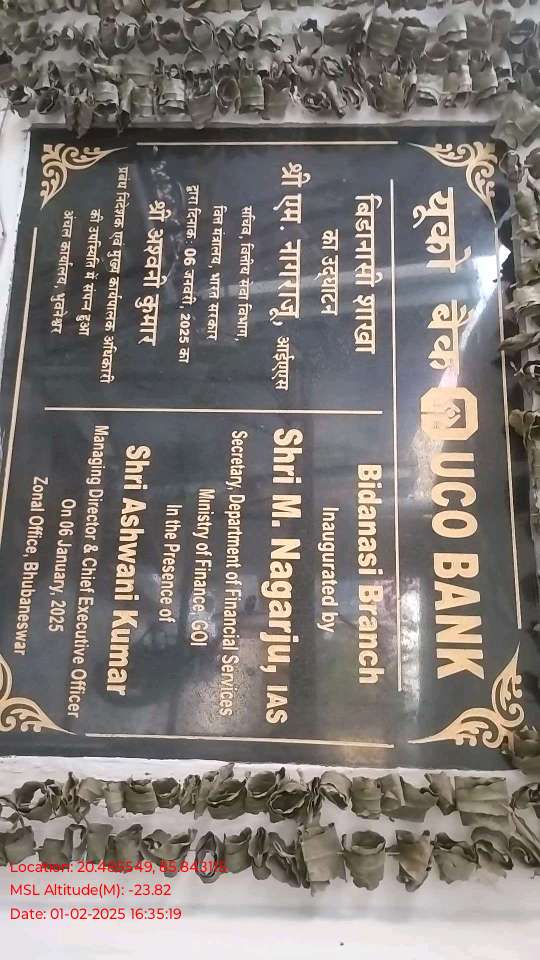 यूको बैंक UCO BANK
बिडानासी शाखा
का उद्घाटन
श्री एम. नागराजू, आईएएस
सचिव, वित्तीय सेवा विभाग,
वित्त मंत्रालय, भारत सरकार
द्वारा दिनांक : 06 जनवरी, 2025 को
श्री अश्वनी कुमार
प्रबंध निदेशक एवं मुख्य कार्यपालक अधिकारी
की उपस्थिति में संपन्न हुआ
अंचल कार्यालय, भुवनेश्वर
Bidanasi Branch
Inaugurated by
Shri M. Nagarju, IAS
Secretary, Department of Financial Services
Ministry of Finance, GOI
In the Presence of
Shri Ashwani Kumar
Managing Director & Chief Executive Officer
On 06 January, 2025
Zonal Office, Bhubaneswar
Location:
MSL Altitude(M): -23.82
Date: 01-02-2025 16:35:19